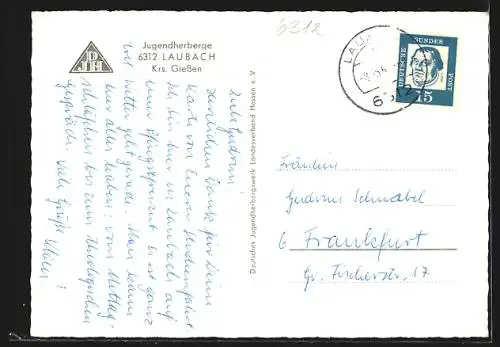 6312
Jugendherberge
6312 LAUBACH
Krs. Gießen
DJH
Liebe Gudrun!
Herzlichen Dank für Deine
Karte von Eurer Studienfahrt.
Ich bin hier in Laubach auf
einer Pfingstfreizeit. Es ist ganz
toll. Wetter geht gerade. Man kann
hier alles haben: vom Mittag-
schläfchen bis zum theologischen
Gespräch. Viele Grüße
Deutsches Jugendherbergswerk Landesverband Hessen e. V.
LAU
6312
DEUTSCHE BUNDES POST
15
Fräulein
Gudrun Schnabel
6 Frankfurt
Gr. Fischerstr. 17